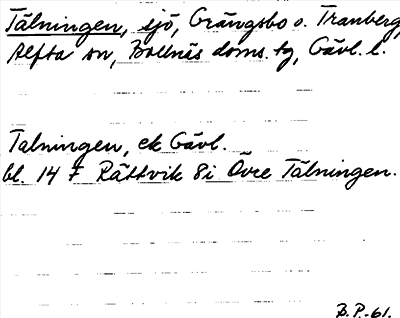 Tälningen, sjö, Grängsbo o. Tranberg,
Alfta sn, Bollnäs doms. tg, Gävl. l.
Talningen, ek Gävl.
bl. 14 F Rättvik 8i Övre Tälningen.
B.P.-61.